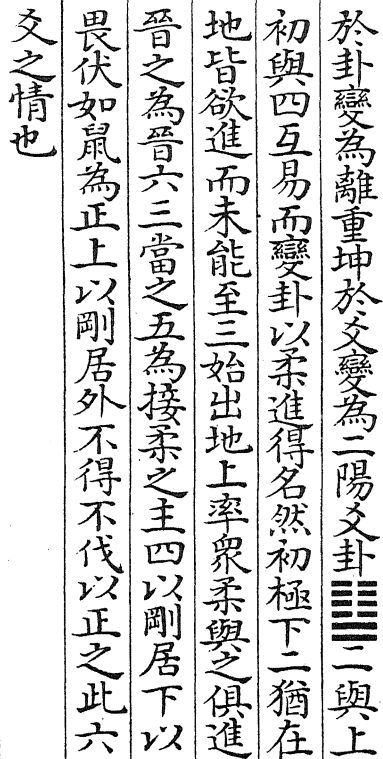 於卦變為離重坤於爻變為二陽爻卦䷒二與上
初與四互易而變卦以柔進得名然初極下二猶在
地皆欲進而未能至三始出地上率眾柔與之俱進
晉之為晉六三當之五為接柔之主四以剛居下以
畏伏如鼠為正上以剛居外不得不伐以正之此六
爻之情也